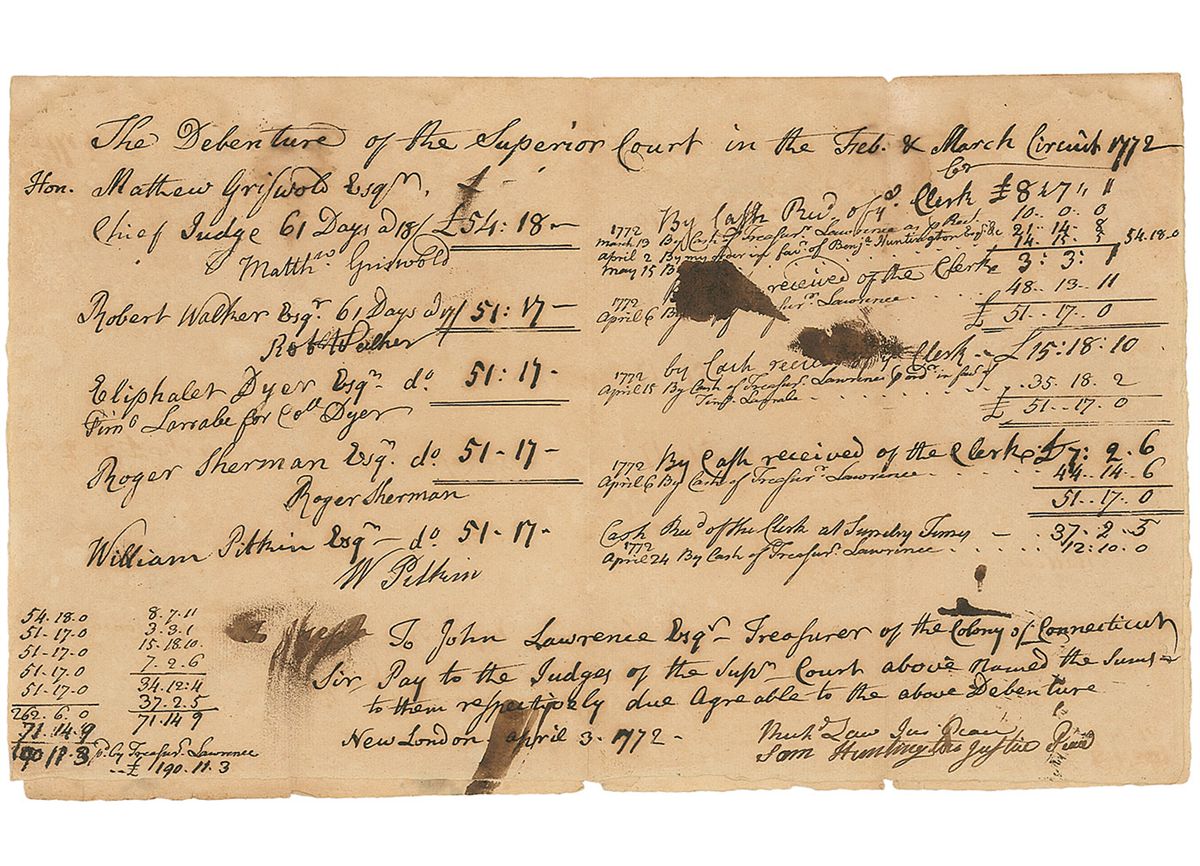 The Debenture of the Superior Court in the Feb. & March Circuit 1772
Hon. Mathew Griswold Esqr.
Chief Judge 61 Days a 18/ £54:18-
Matthw Griswold
Robert Walker Esqr. 61 Days a 17/ 51:17-
Robt Walker
Eliphalet Dyer Esqr. do 51:17-
Timo Larrabe for Coll Dyer
Roger Sherman Esqr. do 51-17-
Roger Sherman
William Pitkin Esqr- do 51-17-
W Pitkin
Cr
By Cash Recd of ye Clerk £8 7 11
1772
March 13 By Cash of Treasurr Lawrence as pr Rect 10..0..0
April 2 By my order in favr of Benja Huntington Esqr &c 21..14..8
May 15 B 14..15..5 54.18.0
received of the Clerk 3:3:1
1772
April 6 By Lawrence 48..13..11
£51..17..0
by Cash received ye Clerk - £15:18:10
1772
April 15 By Cash of Treasurr Lawrence pr ordr in favr of
Timo Larrabe 35.18.2
£51..17.0
By Cash received of the Clerk £7:2.6
1772
April 6 By Cash of Treasurr Lawrence 44..14..6
51..17..0
Cash Recd of the Clerk at Sundry Times - 37-2-5
1772
April 24 By Cash of Treasurr Lawrence 12:10.0
54.18.0
51-17.0
51.17.0
51.17.0
51-17.0
262.6.0
71.14.9
190 11.3
8.7.11
3.3.1
15.18.10
7.2.6
34.12.4
37.2.5
71.14 9
pd by Treasurr Lawrence
£190.11.3
To John Lawrence Esqr- Treasurer of the Colony of Connecticut
Sir Pay to the Judges of the Supr Court above Named the Sums
to them respectively due Agreable to the above Debenture
New London april 3. 1772-
Richd Law Jus Peace
Sam Huntington Justice Peace